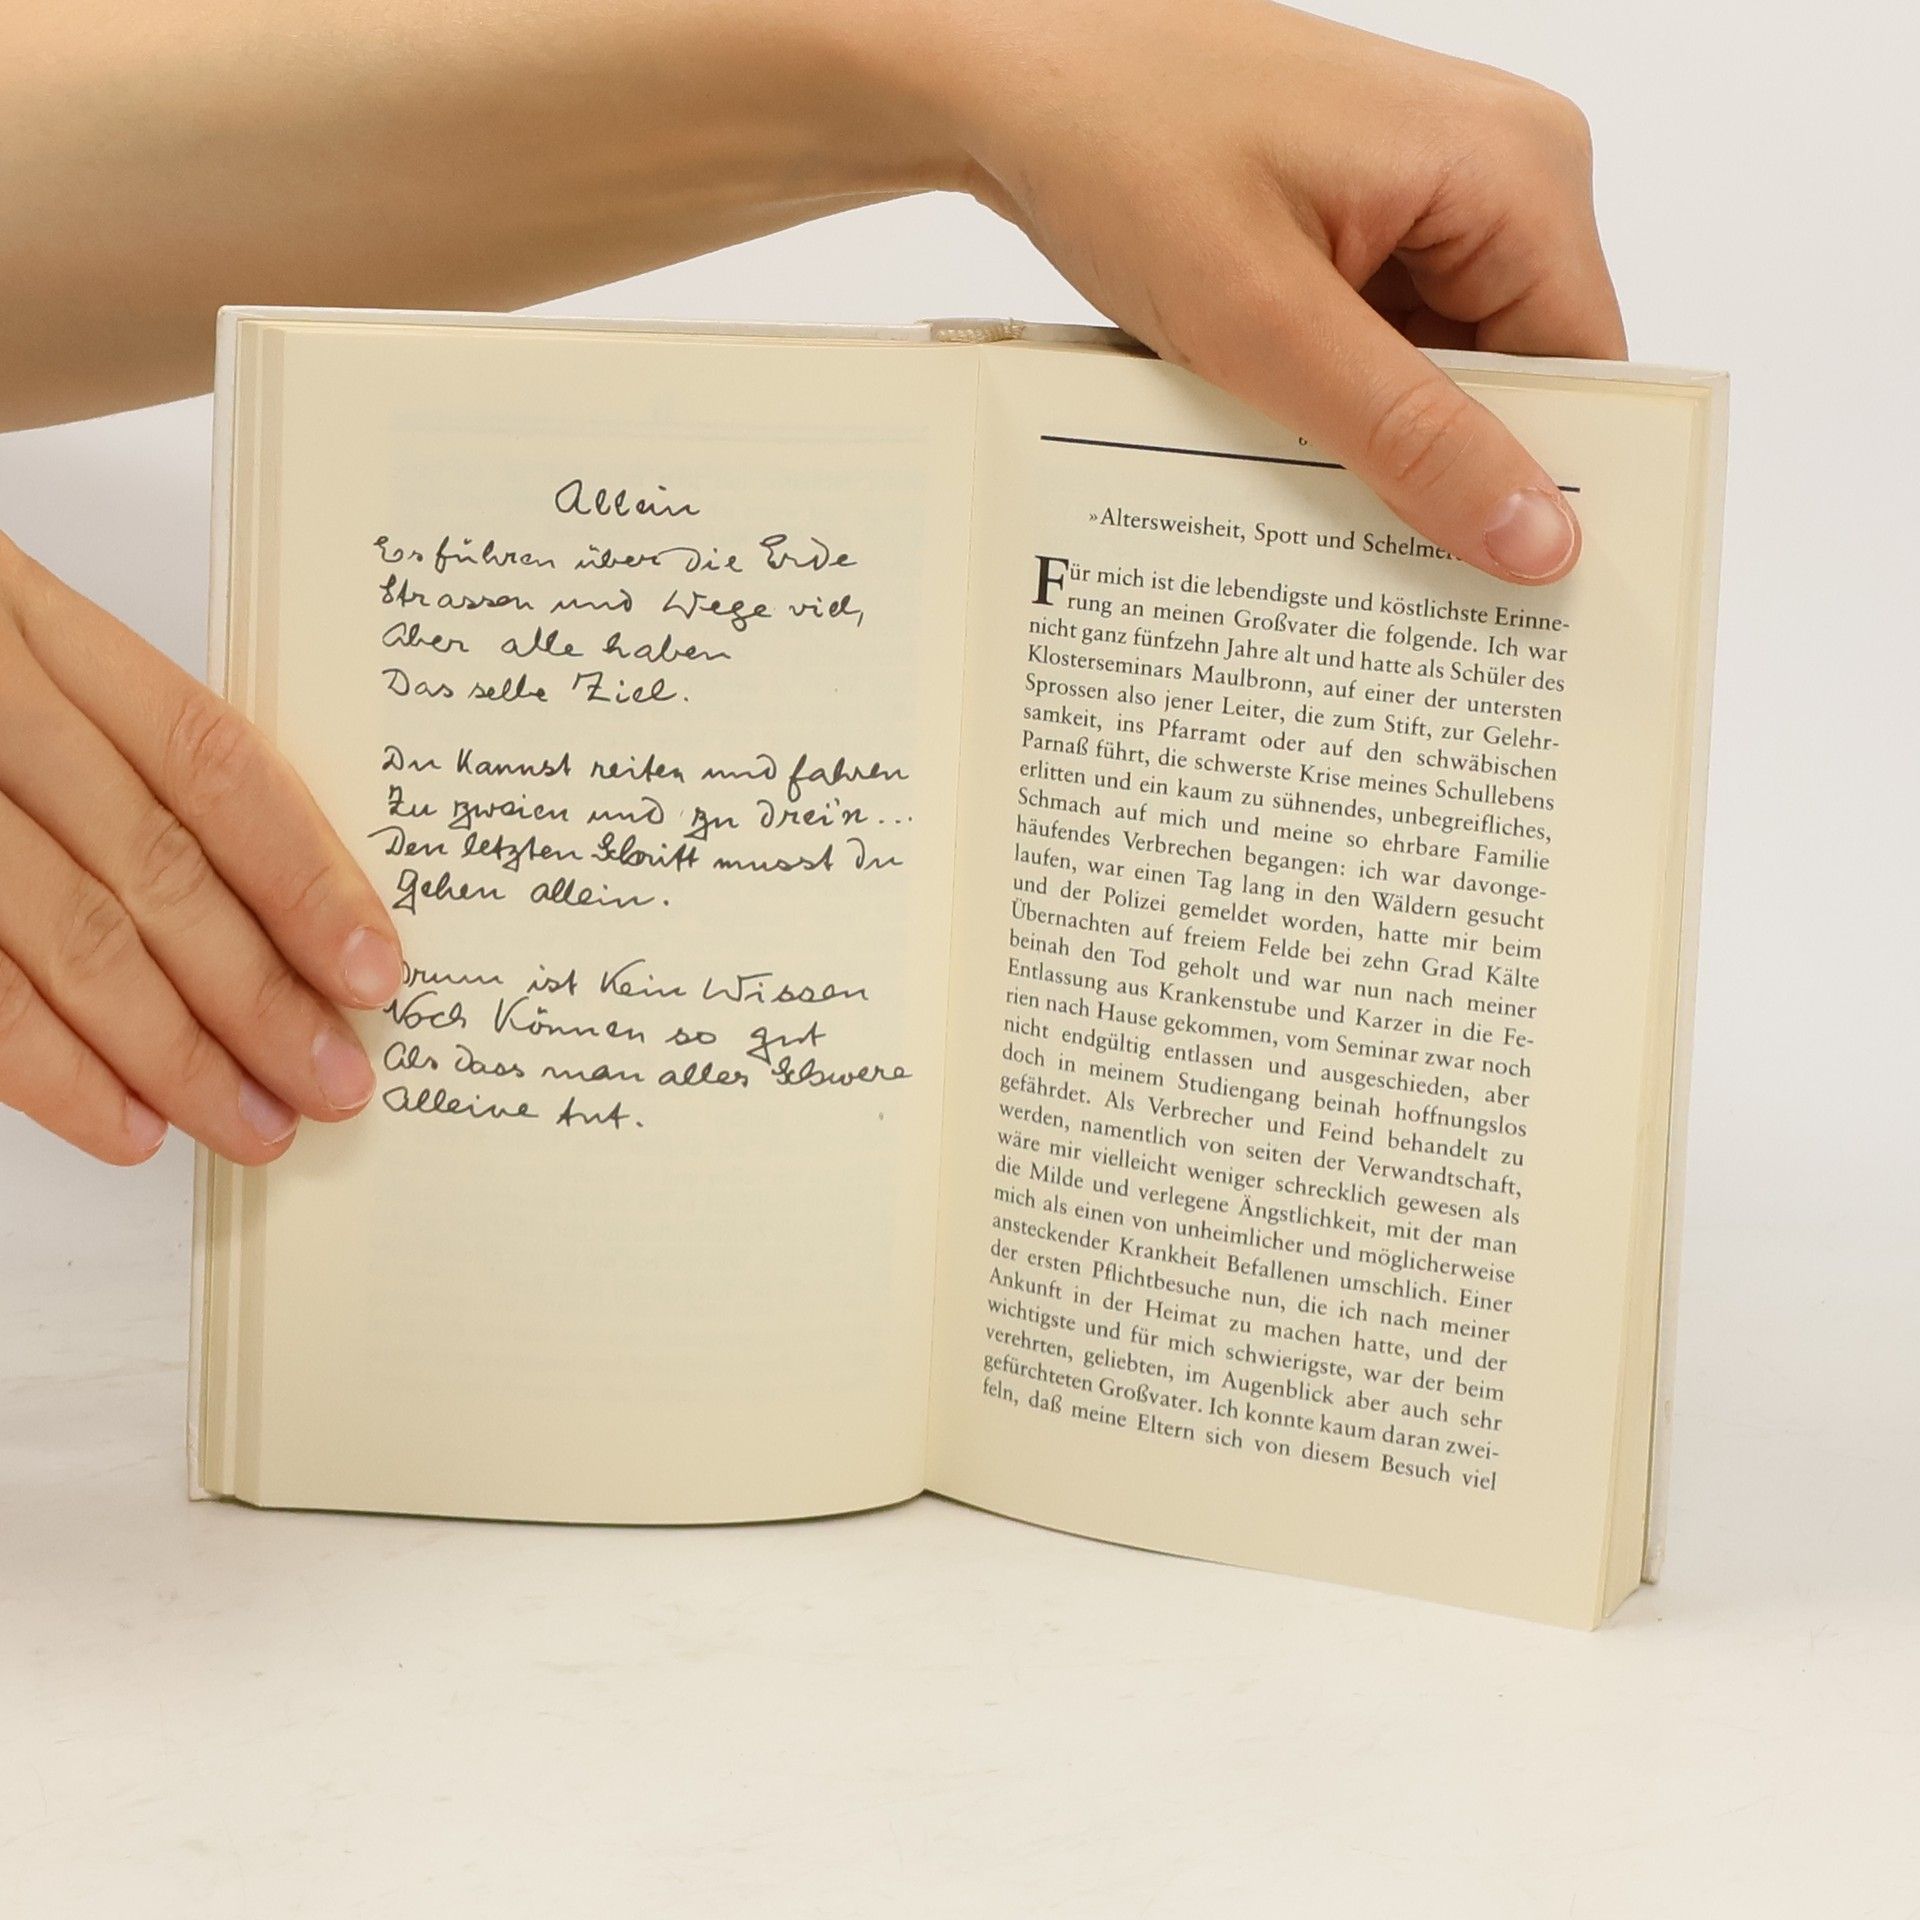 Allein
Es führen über die Erde
Strassen und Wege viel,
Aber alle haben
Das selbe Ziel.
Du kannst reiten und fahren
Zu zweien und zu drei'n...
Den letzten Schritt musst du
Gehen allein.
Drum ist kein Wissen
Noch Können so gut
Als dass man alles Schwere
Alleine tut.
»Altersweisheit, Spott und
Für mich ist die lebendigste und köstlichste Erinne-
rung an meinen Großvater die folgende. Ich war
nicht ganz fünfzehn Jahre alt und hatte als Schüler des
Klosterseminars Maulbronn, auf einer der untersten
Sprossen also jener Leiter, die zum Stift, zur Gelehr-
samkeit, ins Pfarramt oder auf den schwäbischen
Parnaß führt, die schwerste Krise meines Schullebens
erlitten und ein kaum zu sühnendes, unbegreifliches,
Schmach auf mich und meine so ehrbare Familie
häufendes Verbrechen begangen: ich war davonge-
laufen, war einen Tag lang in den Wäldern gesucht
und der Polizei gemeldet worden, hatte mir beim
Übernachten auf freiem Felde bei zehn Grad Kälte
beinah den Tod geholt und war nun nach meiner
Entlassung aus Krankenstube und Karzer in die Fe-
rien nach Hause gekommen, vom Seminar zwar noch
nicht endgültig entlassen und ausgeschieden, aber
doch in meinem Studiengang beinah hoffnungslos
gefährdet. Als Verbrecher und Feind behandelt zu
werden, namentlich von seiten der Verwandtschaft,
wäre mir vielleicht weniger schrecklich gewesen als
die Milde und verlegene Ängstlichkeit, mit der man
mich als einen von unheimlicher und möglicherweise
ansteckender Krankheit Befallenen umschlich. Einer
der ersten Pflichtbesuche nun, die ich nach meiner
Ankunft in der Heimat zu machen hatte, und der
wichtigste und für mich schwierigste, war der beim
verehrten, geliebten, im Augenblick aber auch sehr
gefürchteten Großvater. Ich konnte kaum daran zwei-
feln, daß meine Eltern sich von diesem Besuch viel